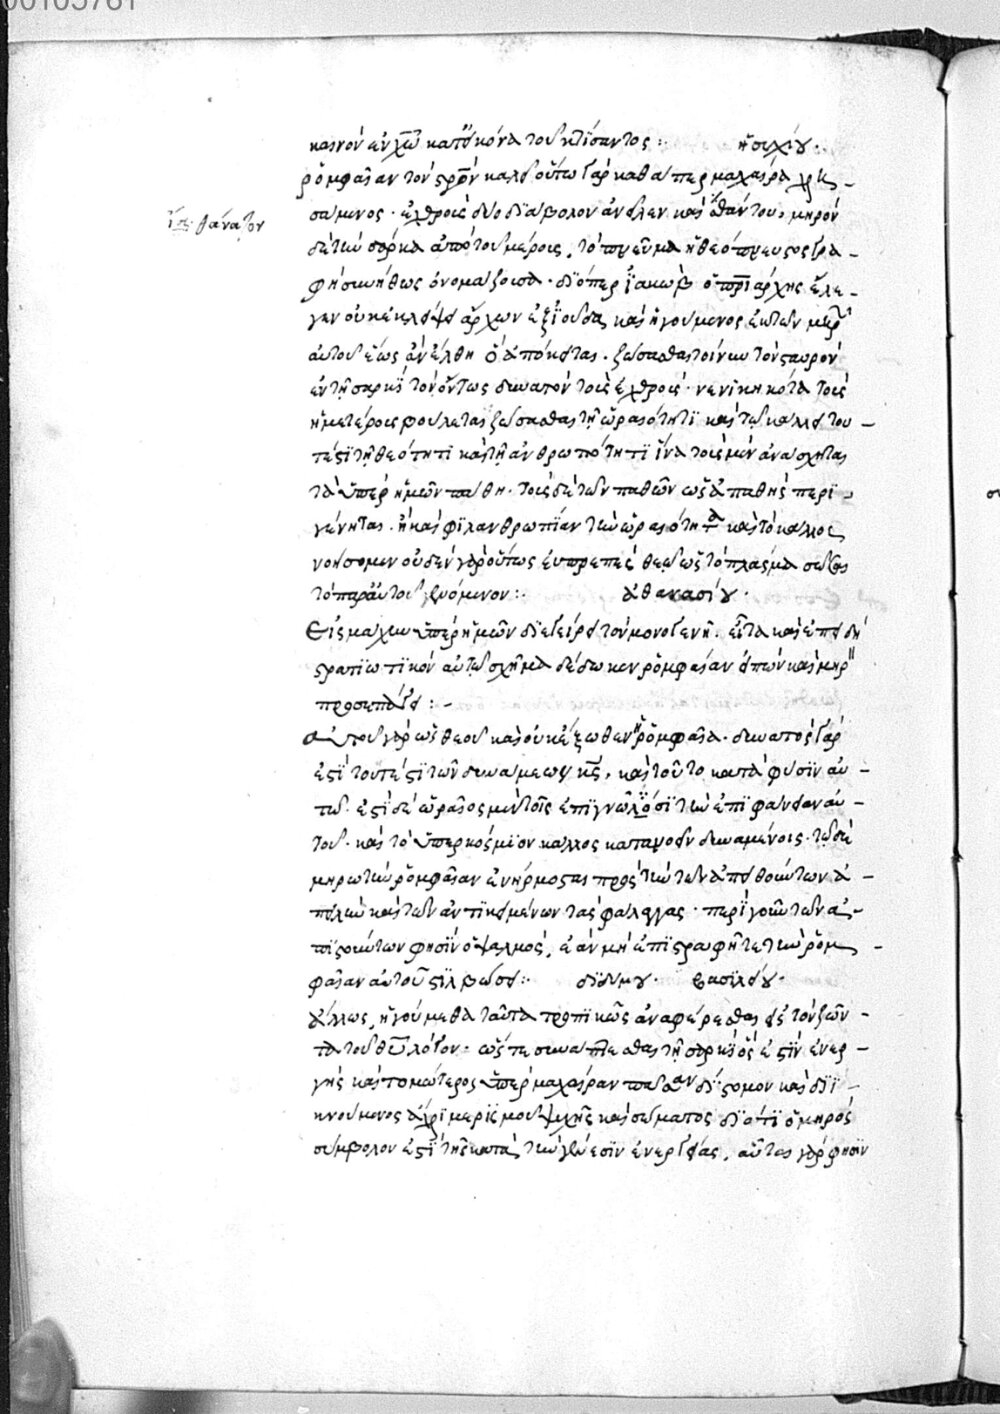 00105761
καινὸν ἐν χω κατ' εἰκόνα τοῦ κτίσαντος :· ἡσυχίου·
ῥομφαίαν τὸν σρον καλεῖ οὕτω γὰρ καθάπερ μαχαίρα χρη-
σάμενος· ἐχθροὺς δύο διάβολον ἀνεῖλεν καὶ θάνατον, μηρὸν
ϊσ· θάνατον
δὲ τὴν σάρκα ἀπὸ τοῦ μέρους, τὸ πνεῦμα ἡ θεόπνευστος γρα-
φὴ συνήθως ὀνομάζουσα· διόπερ ϊακὼβ ὁ πριάρχης ἔλε-
γεν οὐκ ἐκλείψει ἄρχων ἐξ ϊούδα καὶ ἡγούμενος ἐκ τῶν μηρ
αὐτοῦ ἕως ἂν ἔλθῃ ᾧ ἀπόκειται· ζώσασθαι τοίνυν τὸν σταυρὸν
ἐν τῇ σαρκὶ τὸν ὄντως δυνατὸν τοὺς ἐχθροὺς· νενικηκότα τοὺς
ἡμετέρους βούλεται ζώσασθαι τῇ ὡραιότητι καὶ τῷ κάλλει του-
τέστι τῇ θεότητι καὶ τῇ ἀνθρωπότητι ἵνα τοῖς μὲν ἀνάσχηται
τὰ ὑπὲρ ἡμῶν πάθη· τοῖς δὲ τῶν παθῶν ὡς ἀπαθὴς περι-
γένηται· ἢ καὶ φιλανθρωπίαν τὴν ὡραιότητα καὶ τὸ κάλλος
νοήσομεν οὐδὲν γὰρ οὕτως εὐπρεπὲς θεῷ ὡς τὸ πλάσμα σῶσαι
τὸ παρ' αὐτοῦ γενόμενον :· ἀθανασίου·
Εἰς μάχην ὑπὲρ ἡμῶν διεγείρει τὸν μονογενῆ· εἶτα καὶ ἐπειδὴ
στρατιωτικὸν αὐτῷ σχῆμα δέδωκεν ῥομφαίαν εἰπὼν καὶ μηρ
προσεπάγει :-
αὐτοῦ γὰρ ὡς θεοῦ καὶ οὐκ ἔξωθεν ἡ ῥομφαία· δυνατὸς γάρ
ἐστι τουτέστι τῶν δυνάμεων κς, καὶ τοῦτο κατὰ φύσιν αὐ-
τῷ· ἔστι δὲ ὡραῖος μὲν τοῖς ἐπιγνῶσι τὴν ἐπιφάνειαν αὐ-
τοῦ· καὶ τὸ ὑπερκόσμιον κάλλος κατανοεῖν δυναμένοις· τῷ δὲ
μηρῷ τὴν ῥομφαίαν ἐνήρμοσται πρὸς τὴν τῶν ἀπειθούντων ἀ-
πειλὴν καὶ τῶν ἀντικειμένων τὰς φάλαγγας· περὶ γοῦν τῶν ἀ-
πιστούντων φησὶν ὁ ψαλμὸς, ἐὰν μὴ ἐπιστραφῆτε τὴν ῥομ-
φαίαν αὐτοῦ στιλβώσει :· διδύμου· βασιλείου·
ἄλλως, ἡγούμεθα ταῦτα τροπικῶς ἀναφέρεσθαι εἰς τὸν ζῶν-
τα τοῦ θυ λόγον· ὥστε συνάπτεσθαι τῇ σαρκὶ ὅς ἐστιν ἐνερ-
γὴς καὶ τομώτερος ὑπὲρ μάχαιραν πᾶσαν δίστομον καὶ διϊ-
κνούμενος ἄχρι μερισμοῦ ψυχῆς καὶ σώματος διότι ὁ μηρὸς
σύμβολον ἐστὶ τῆς κατὰ τὴν γένεσιν ἐνεργείας, αὗται γάρ φησιν